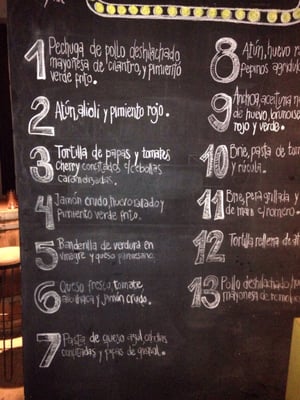 1 Pechuga de pollo deshilachado,
mayonesa de cilantro, y pimiento
verde frito.
2 Atún, alioli y pimiento rojo.
3 Tortilla de papas y tomates
cherry confitados c/cebollas
caramelizadas.
4 Jamón crudo, huevo rallado y
pimiento verde frito.
5 Banderilla de verdura en
vinagre y queso parmesano.
6 Queso fresco, tomate,
albahaca y jamón crudo.
7 Pasta de queso azul,
confitadas y pipas de girasol.
8 Atún, huevo
Pepinos
9 Anchoa, aceituna
de huevo, brunoise
rojo y verde.
10 Brie, pasta de
y rúcula.
11 Brie, pera grillada y
de c/romero
12 Tortilla rellena de
13 Pollo deshilachado
mayonesa de